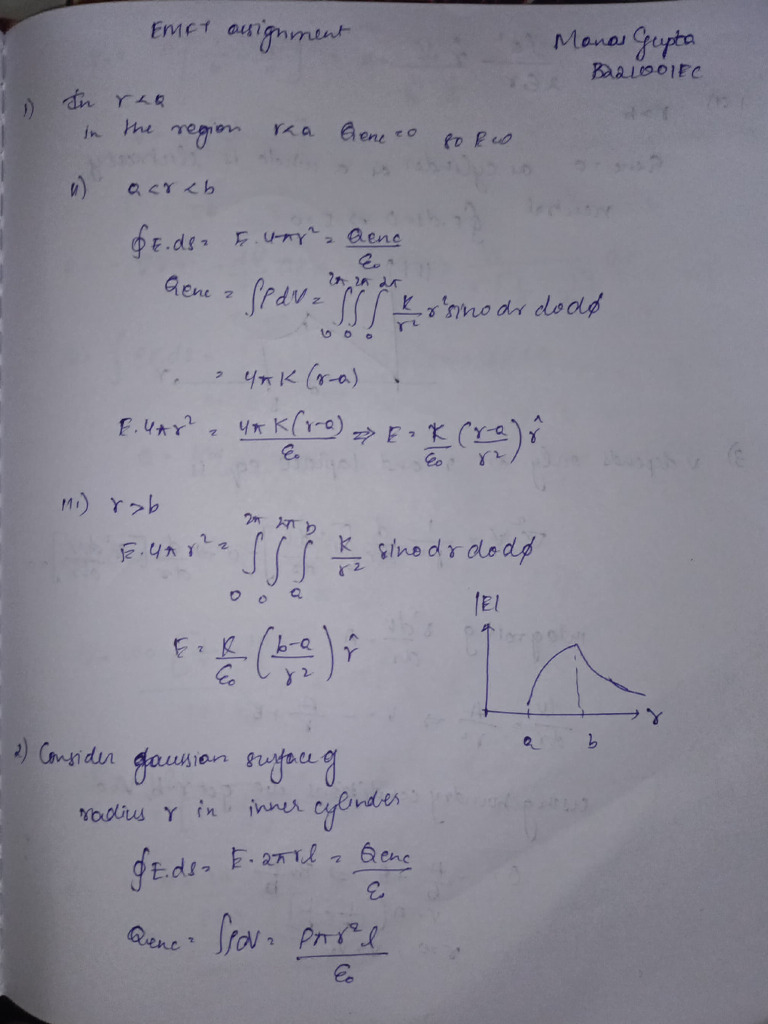 EMFT assignment
Manas Gupta
B221001EC
1) In r<a
in the region r<a Qenc=0 so E=0
ii) a<r<b
∮E.ds = E.4πr² = Qenc/ε₀
Qenc = ∫ρdV = ∫∫∫ K/r² r²sinθ dr dθ dφ
= 4πK(r-a).
E.4πr² = 4πK(r-a)/ε₀ ⇒ E = K/ε₀ (r-a/r²) r̂
iii) r>b
E.4πr² = ∫₀^2π ∫₀^2π ∫ₐ^b K/r² sinθ dr dθ dφ
E = K/ε₀ (b-a/r²) r̂
|E|
r
a b
2) Consider gaussian surface of
radius r in inner cylinder
∮E.ds = E.2πrl = Qenc/ε₀
Qenc = ∫ρdV = ρπr²l/ε₀